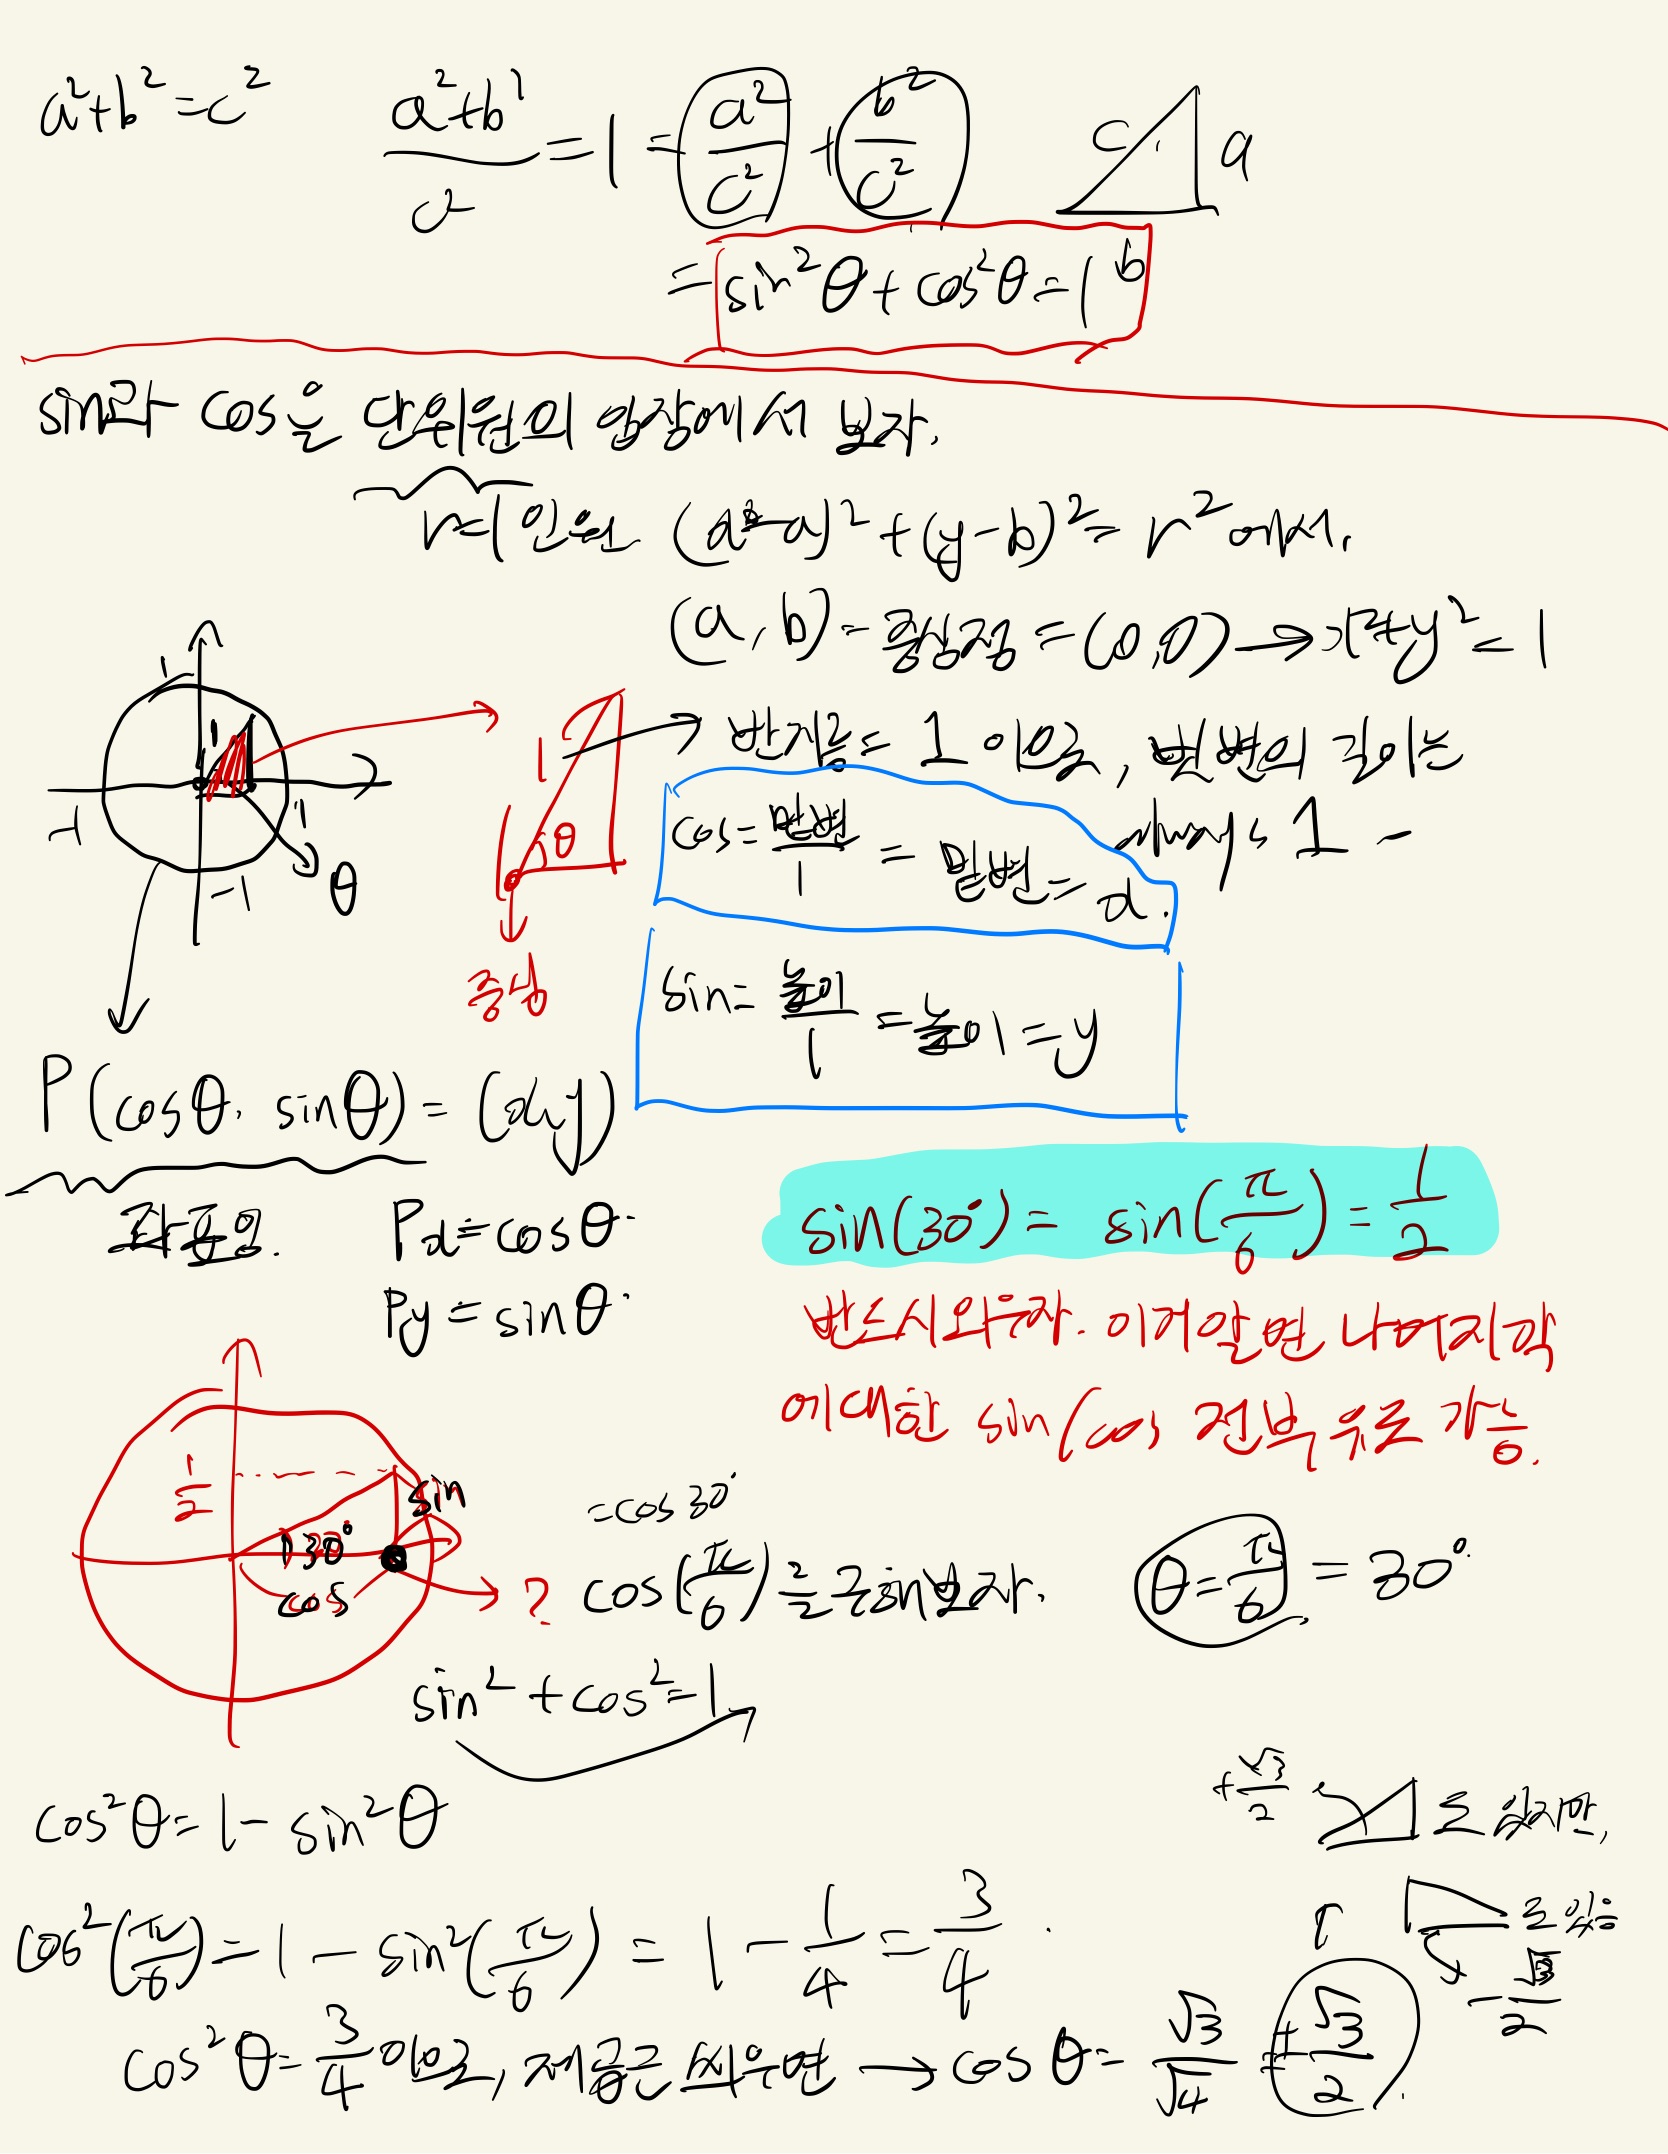 a²+b²=c²
a²+b²/c² = 1 = a²/c² + b²/c²
c a
b
= sin²θ + cos²θ = 1
sin과 cos은 단위원의 입장에서 보자.
r=1인 원 (x-a)²+(y-b)²=r²에서,
(a, b) = 중심점 = (0,0) → x²+y²=1
1 1 1 -1 -1 θ
1 θ → 반지름 = 1 이므로, 빗변의 길이는
always 1
cos = 밑변/1 = 밑변 = x.
중심
sin = 높이/1 = 높이 = y
P(cosθ, sinθ) = (x, y)
좌표임.
Px = cosθ
Py = sinθ
sin(30°) = sin(π/6) = 1/2
반드시 외우자. 이거 알면 나머지 각
에 대한 sin/cos 전부 유도 가능.
1/2 30° sin cos → ?
= cos 30°
cos(π/6)를 구해보자.
θ = π/6 = 30°
sin² + cos² = 1
cos²θ = 1 - sin²θ
+√3/2 로 있지만,
로 있음
-√3/2
cos²(π/6) = 1 - sin²(π/6) = 1 - 1/4 = 3/4.
cos²θ = 3/4 이므로, 제곱근 씌우면 → cosθ = √3/√4 = ±√3/2.